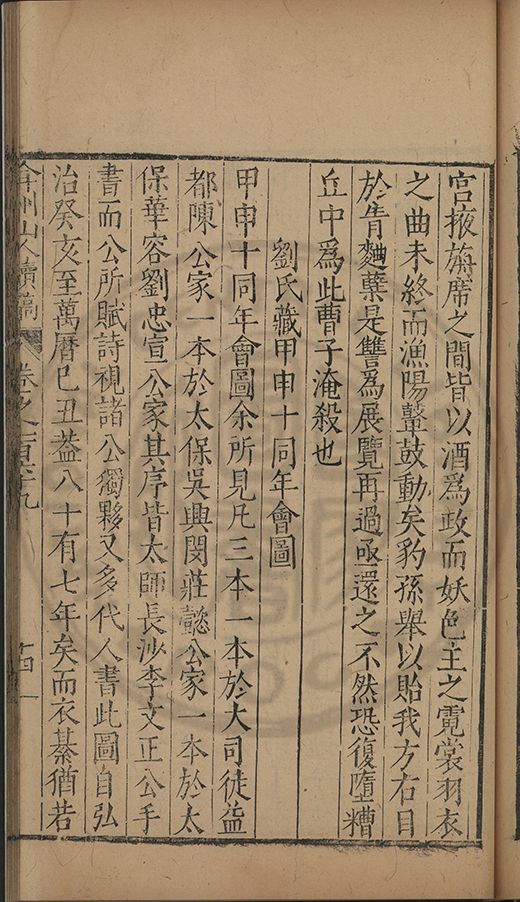 宮掖旃席之間皆以酒爲政而妖色主之霓裳羽衣
之曲未終而漁陽鼙鼓動矣豹孫舉以貽我方右目
於眚麯糵是讐爲展覽再過亟還之不然恐復墮糟
丘中爲此曹子淹殺也
劉氏藏甲申十同年會圖
甲申十同年會圖余所見凡三本一本於大司徒益
都陳公家一本於太保吳興閔莊懿公家一本於太
保華容劉忠宣公家其序皆太師長沙李文正公手
書而公所賦詩視諸公獨夥又多代人書此圖自弘
治癸亥至萬曆巳丑葢八十有七年矣而衣綦猶若
弇州山人續稿 卷之一百六十九 十四